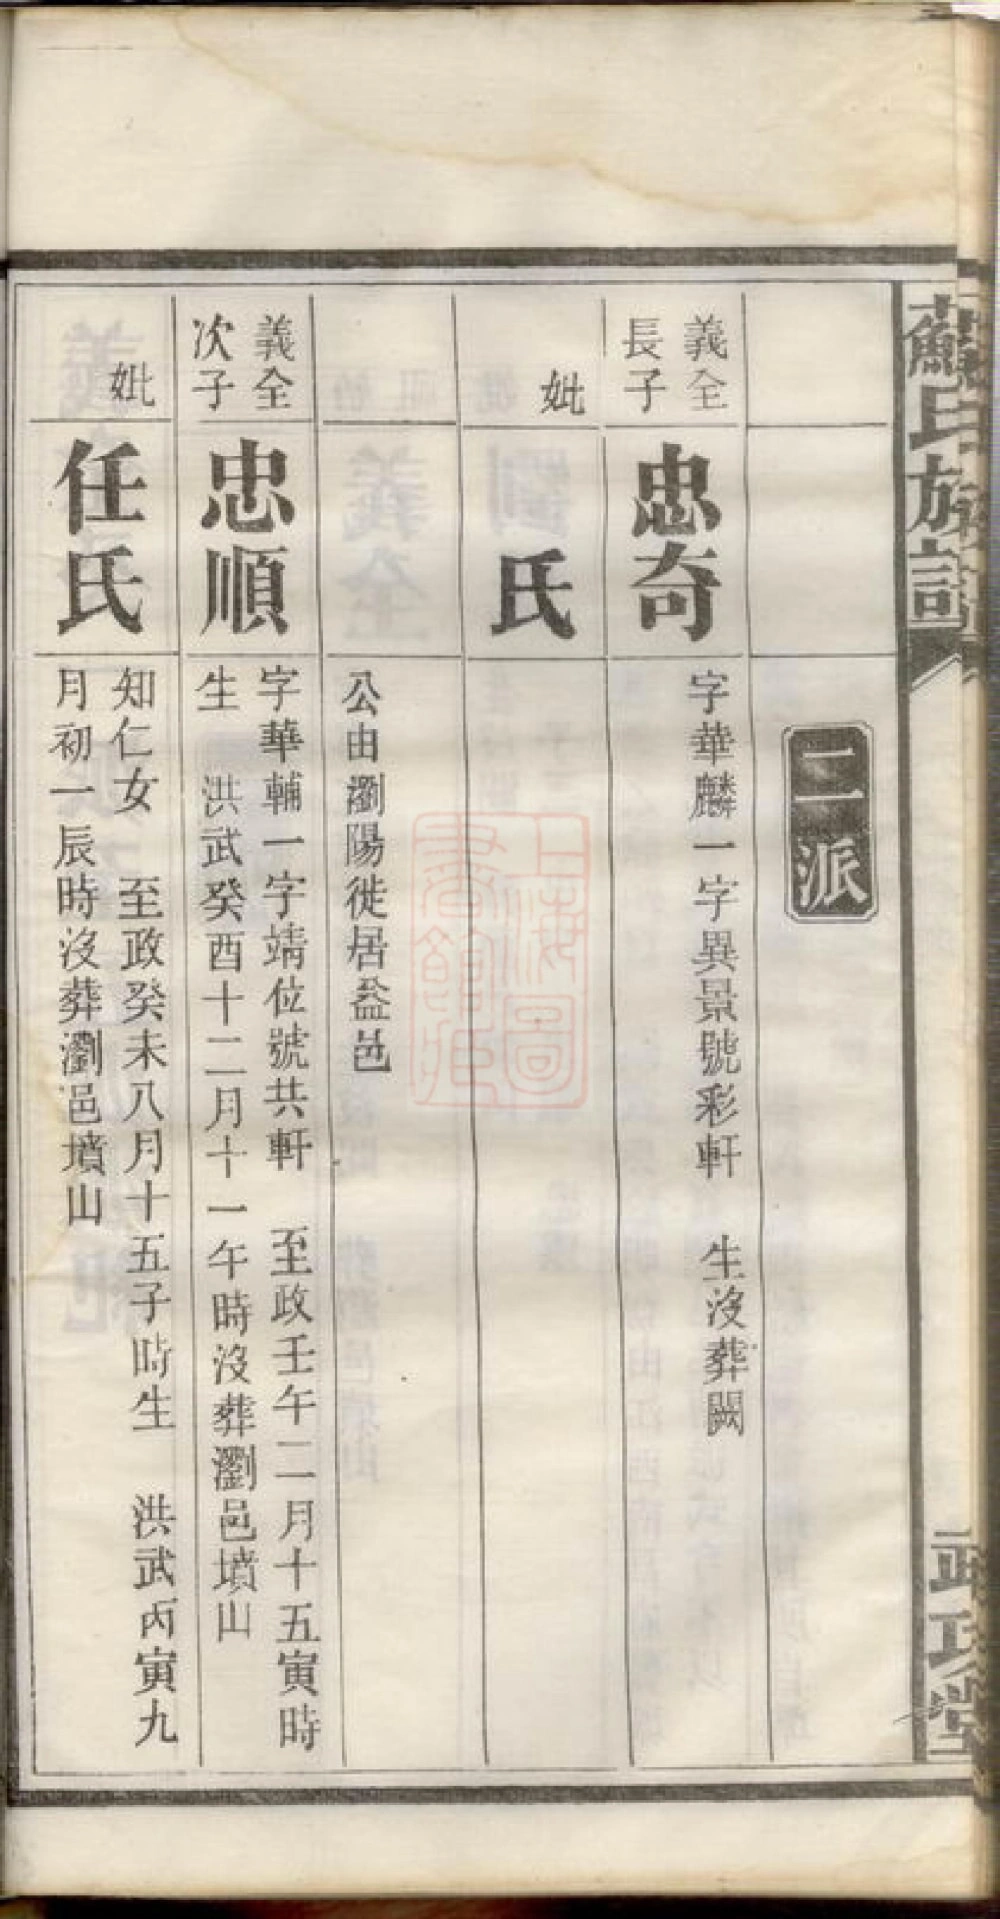 蘇氏族譜
武功堂
二派
義全
長子
忠奇
字華麟一字異景號彩軒 生沒葬闕
妣
氏
公由瀏陽徙居益邑
義全
次子
忠順
字華輔一字靖位號共軒 至政壬午二月十五寅時
生 洪武癸酉十二月十一午時沒葬瀏邑墳山
妣
任氏
知仁女 至政癸未八月十五子時生 洪武丙寅九
月初一辰時沒葬瀏邑墳山
上海圖
書館藏